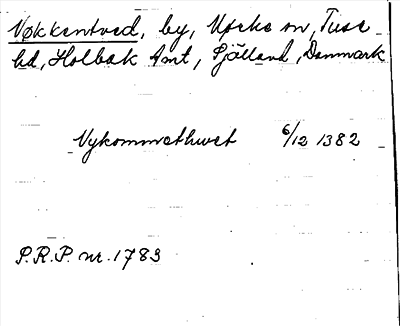 Vøkkentved, by, Uerke sn, Tuse
hd, Holbæk Amt, Själland, Danmark
Vykommethwet 6/12 1382
P.R.P. nr. 1783